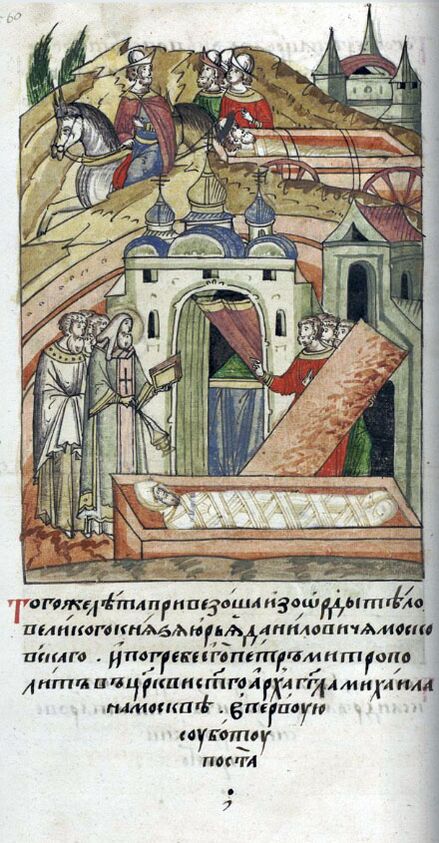 60
Тогожелѣтапривезошаизоѡрдытѣло
великогокнѧзѧюрьѧданиловичѧмоско
вскаго . ипогребеегопетрьмитропо
литьвъцркѵистгоархаггламихаила
намосквѣ вперꙋвою
соуботоу
поста